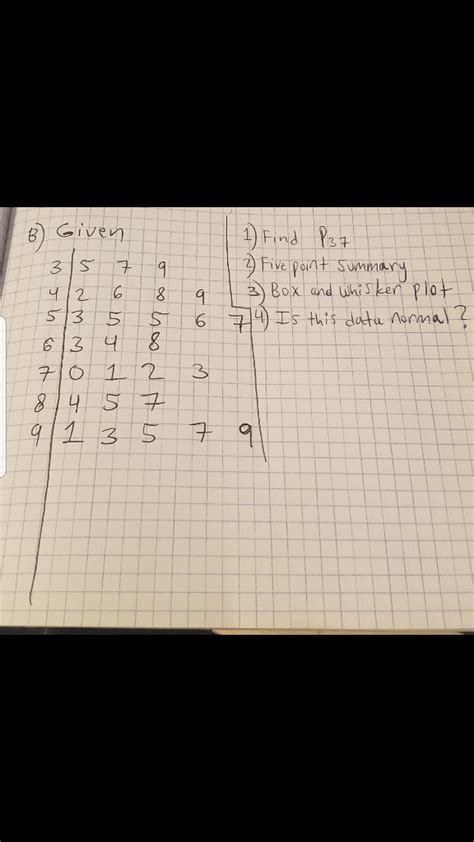 B) Given
3 | 5 7 9
4 | 2 6 8 9
5 | 3 5 5 6 7
6 | 3 4 8
7 | 0 1 2 3
8 | 4 5 7
9 | 1 3 5 7 9
1) Find P37
2) Five point summary
3) Box and whisker plot
4) Is this data normal?